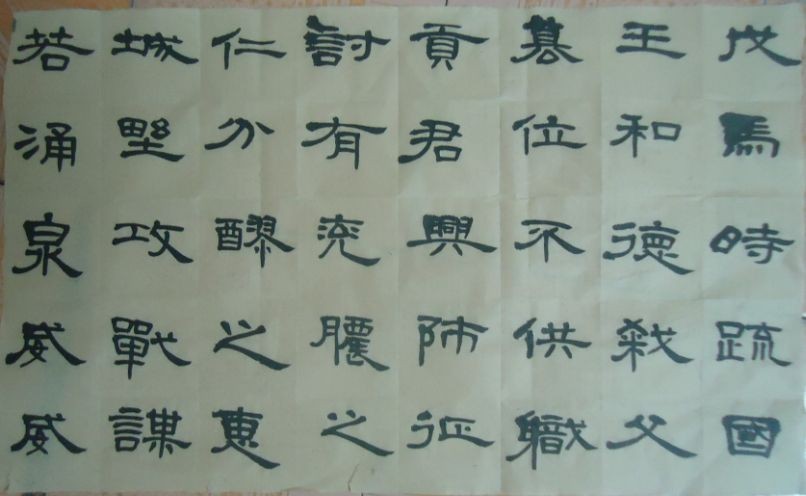 戊馬時疏國
王和德弒父
篡位不供職
貢君興師征
討有兖膿之
仁分醪之惠
城野攻戰謀
若涌泉威威